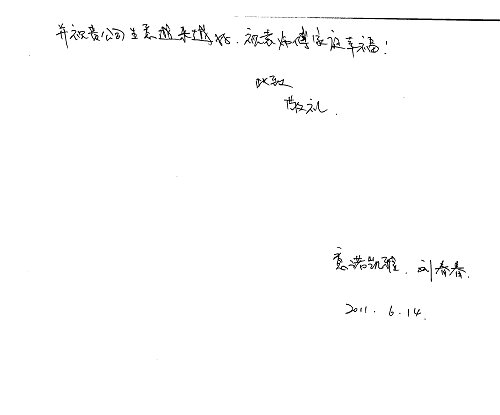 并祝贵公司生意越来越好.祝袁师傅家庭幸福!
此致
敬礼.
意诺凯雅.刘春春.
2011.6.14.